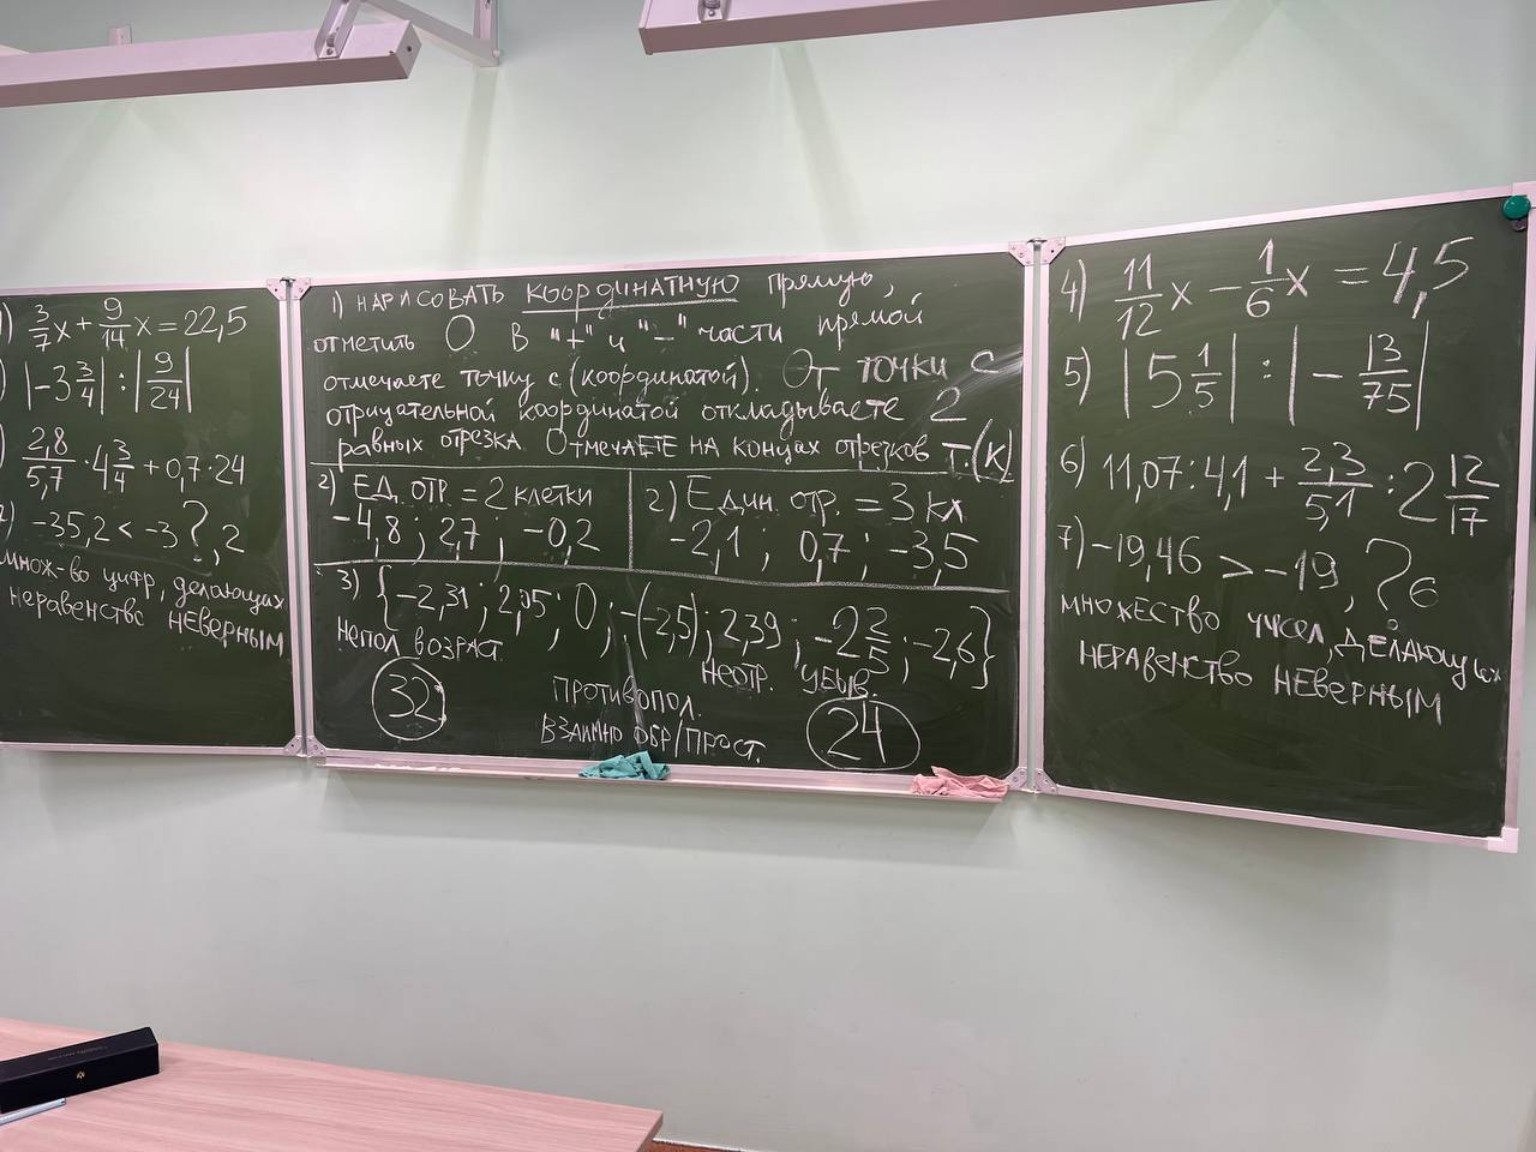 ) 3/7 x + 9/14 x = 22,5
) |-3 3/4| : |9/24|
) 2,8/5,7 · 4 3/4 + 0,7 · 24
) -35,2 < -3?,2
множ-во цифр, делающих
неравенство неверным
1) нарисовать координатную прямую,
отметить 0 в "+" и "-" части прямой
отмечаете точку с (координатой). От точки с
отрицательной координатой откладываете 2
равных отрезка. Отмечаете на концах отрезков т.(к)
2) Ед. отр. = 2 клетки
-4,8 ; 2,7 ; -0,2
2) Един. отр. = 3 кл
-2,1 ; 0,7 ; -3,5
3) {-2,31 ; 2,05 ; 0 ; -(-2,5) ; 2,39 ; -2 2/5 ; -2,6}
непол возраст.
неотр. убыв.
32
противопол.
взаимно обр/прост.
24
4) 11/12 x - 1/6 x = 4,5
5) |5 1/5| : |- 13/75|
6) 11,07 : 4,1 + 2,3/5,1 : 2 12/17
7) -19,46 > -19,?6
множество чисел, делающих
неравенство неверным